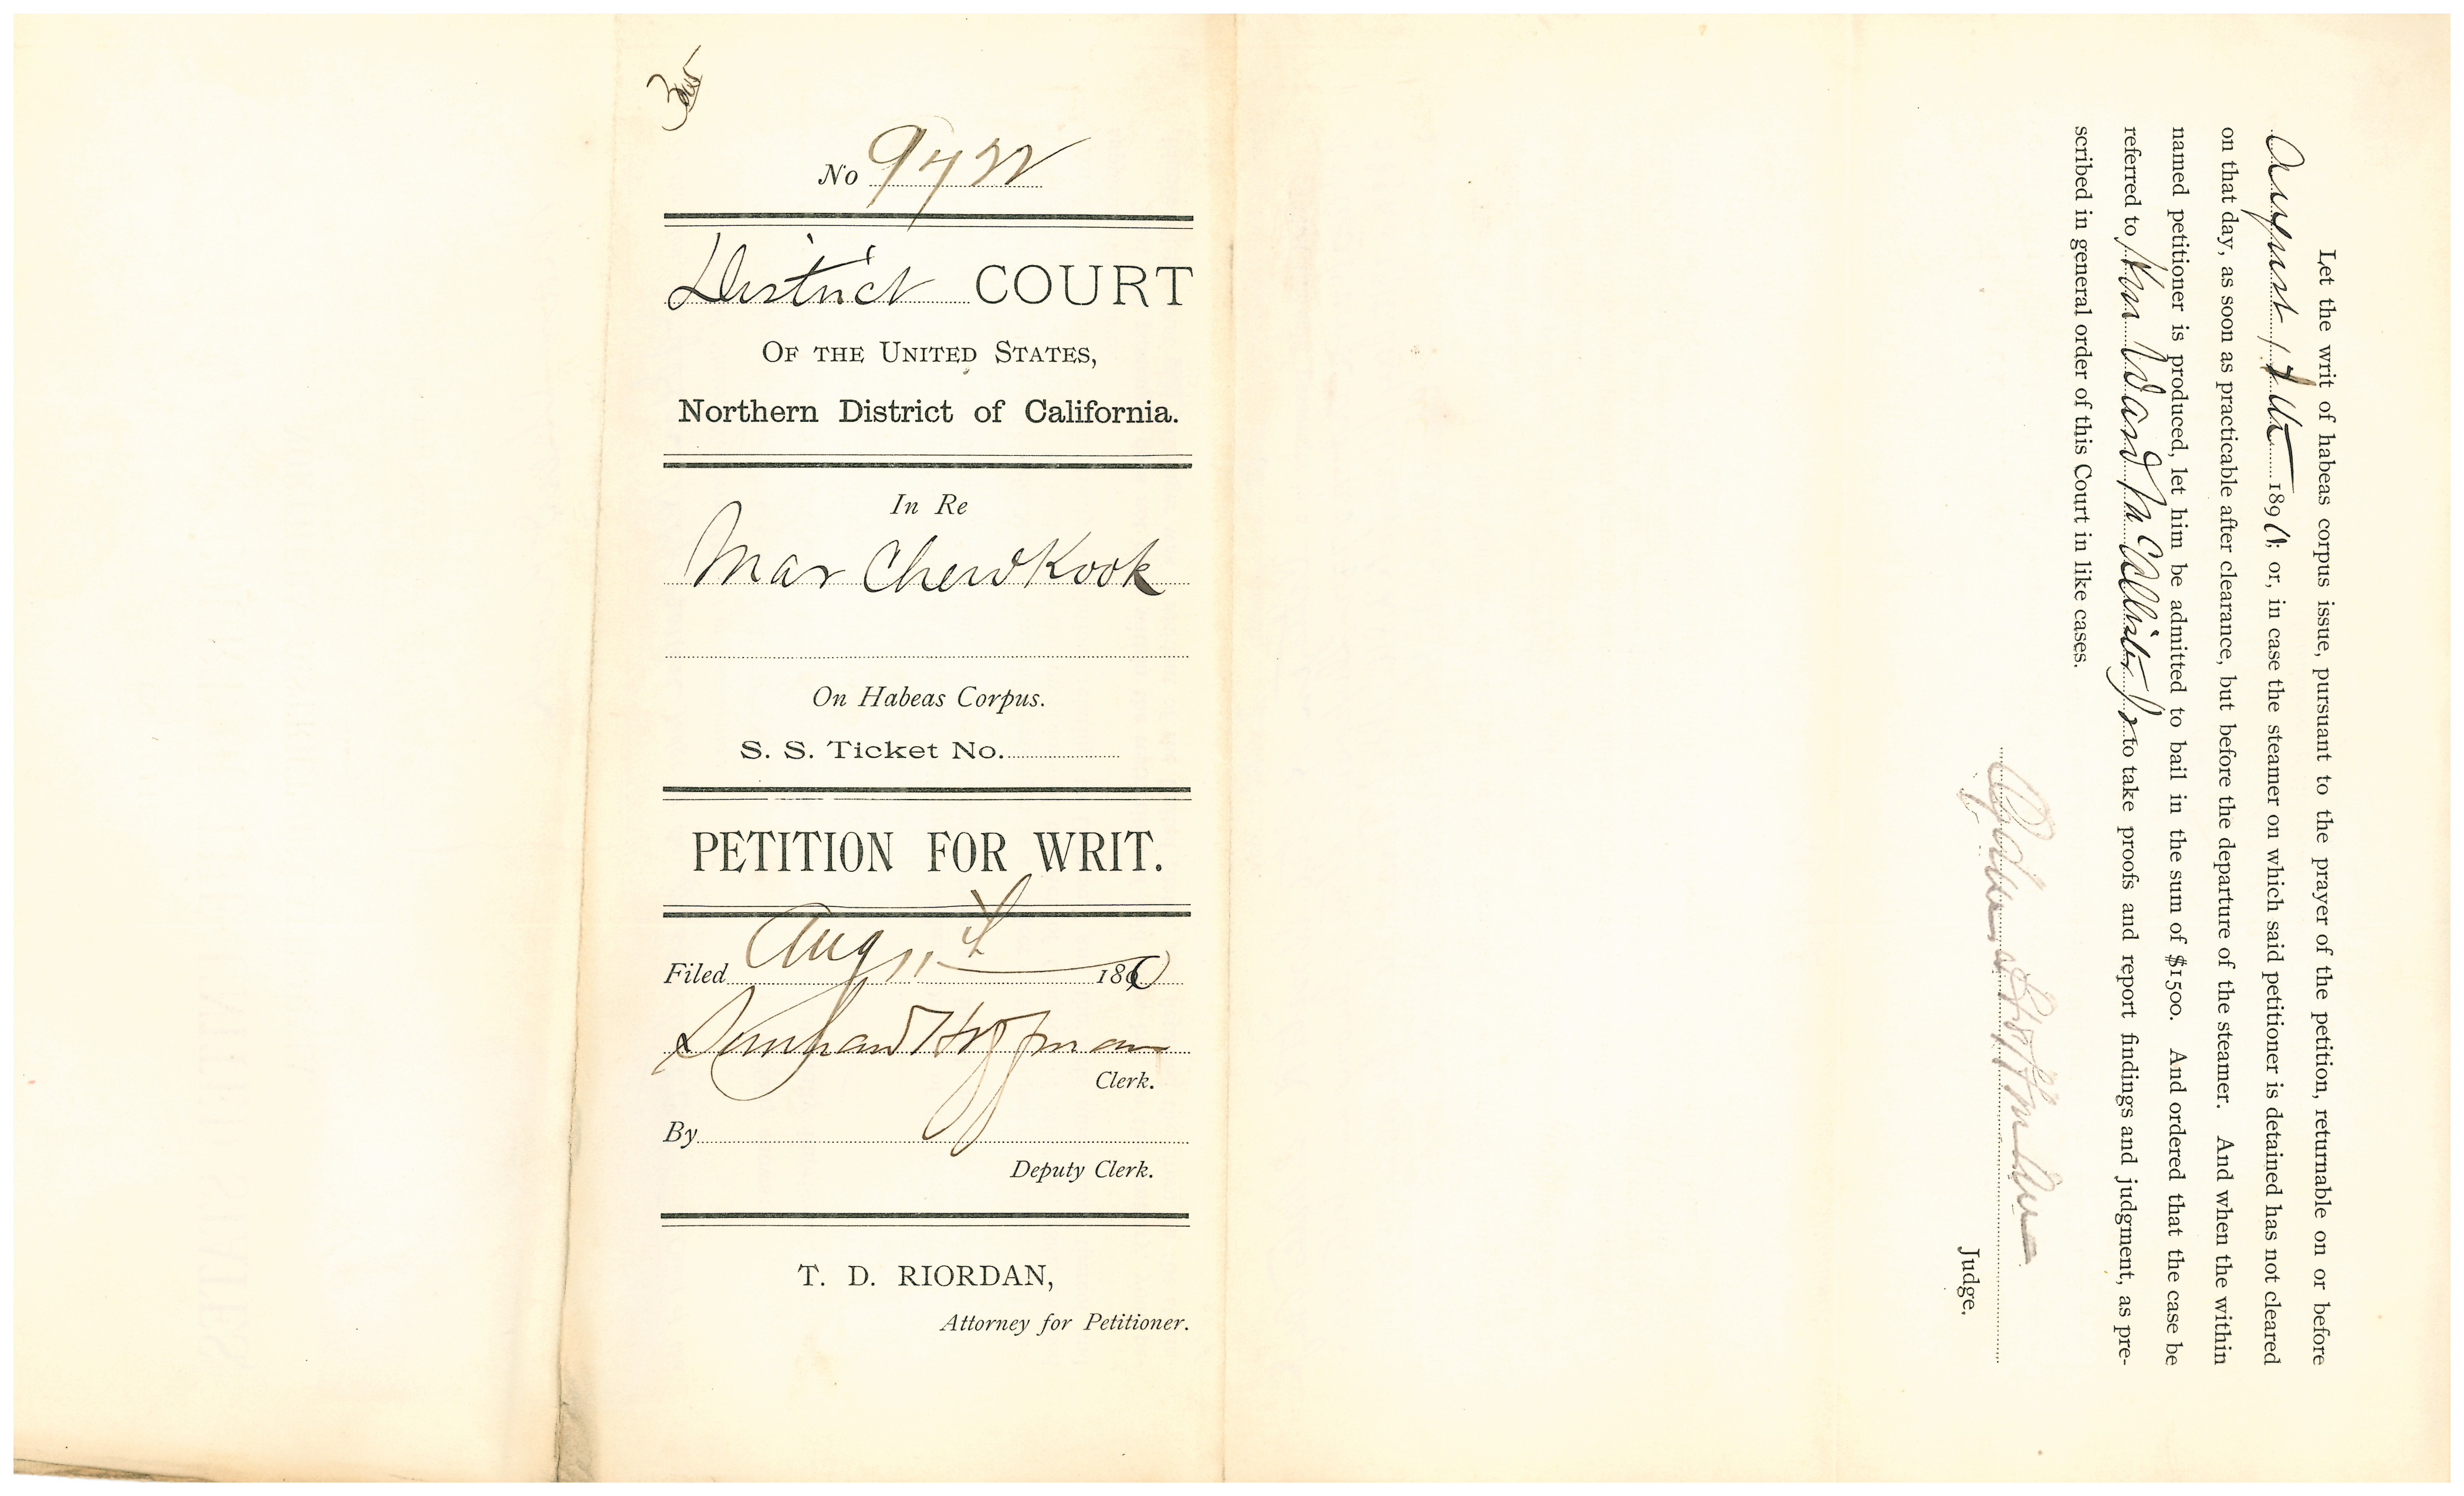 No 9422
District COURT
OF THE UNITED STATES,
Northern District of California.
In Re
Mar Chew Kook
On Habeas Corpus.
S. S. Ticket No.
PETITION FOR WRIT.
Filed Aug 11th 18
Hoffman
Clerk.
By
Deputy Clerk.
T. D. RIORDAN,
Attorney for Petitioner.
Let the writ of habeas corpus issue, pursuant to the prayer of the petition, returnable on or before
August 189 ; or, in case the steamer on which said petitioner is detained has not cleared
on that day, as soon as practicable after clearance, but before the departure of the steamer. And when the within
named petitioner is produced, let him be admitted to bail in the sum of $1500. And ordered that the case be
referred to Ward McAllister Jr to take proofs and report findings and judgment, as pre-
scribed in general order of this Court in like cases.
Judge.